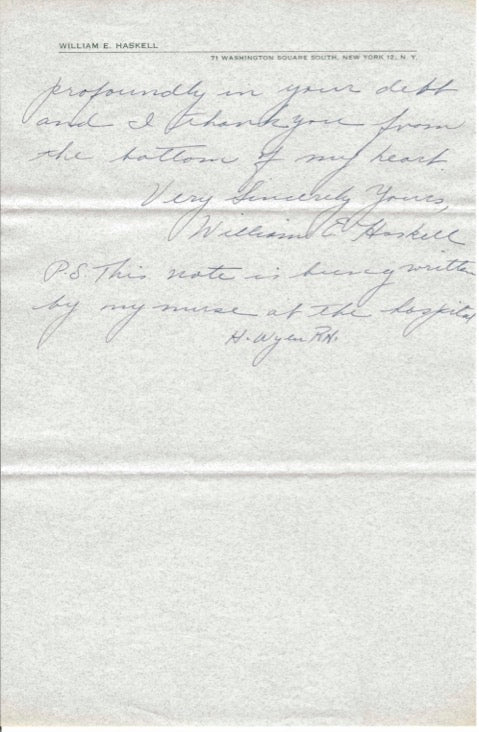 WILLIAM E. HASKELL
71 WASHINGTON SQUARE SOUTH, NEW YORK 12, N. Y.
profoundly in your debt
and I thank you from
the bottom of my heart
Very Sincerely Yours,
William E Haskell
P.S. This note is being written
by my nurse at the hospital
H. Wyen R.N.